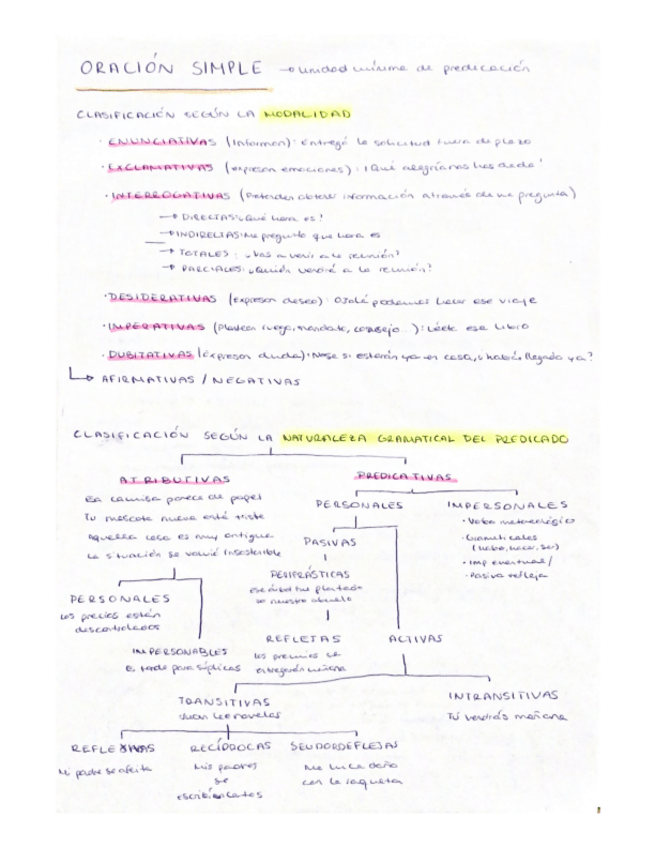 ORACIÓN SIMPLE → unidad mínima de predicación
CLASIFICACIÓN SEGÚN LA MODALIDAD
· ENUNCIATIVAS (Informan): Entregó la solicitud fuera de plazo
· EXCLAMATIVAS (expresan emociones): ¡Qué alegría nos has dado!
· INTERROGATIVAS (Pretenden obtener información a través de una pregunta)
→ DIRECTAS: ¿Qué hora es?
→ INDIRECTAS: Me pregunto que hora es
→ TOTALES: ¿Vas a venir a la reunión?
→ PARCIALES: ¿Quién vendrá a la reunión?
· DESIDERATIVAS (expresan deseo): Ojalá podamos hacer ese viaje
· IMPERATIVAS (Plantean ruego, mandato, consejo...): Léete ese libro
· DUBITATIVAS (Expresan duda): No se si estarán ya en casa, ¿habrán llegado ya?
→ AFIRMATIVAS / NEGATIVAS
CLASIFICACIÓN SEGÚN LA NATURALEZA GRAMATICAL DEL PREDICADO
ATRIBUTIVAS
La camisa parece de papel
Tu mascota nueva está triste
Aquella casa es muy antigua
La situación se volvió insostenible
PERSONALES
Los precios están
descontrolados
IMPERSONABLES
Es tarde para súplicas
PREDICATIVAS
PERSONALES
PASIVAS
PERIFRÁSTICAS
ese árbol fue plantado
nuestro abuelo
REFLETAS
los premios se
entregarán mañana
ACTIVAS
IMPERSONALES
· Verbo meteorológico
· Gramaticales
(haber, hacer, ser)
· Imp eventual /
· Pasiva refleja
TRANSITIVAS
Juan lee novelas
INTRANSITIVAS
Tú vendrás mañana
REFLEXIVAS
Mi padre se afeita
RECÍPROCAS
Mis padres
se
escribían cartas
SEUDORDEFLEJAS
Me hice daño
con la raqueta